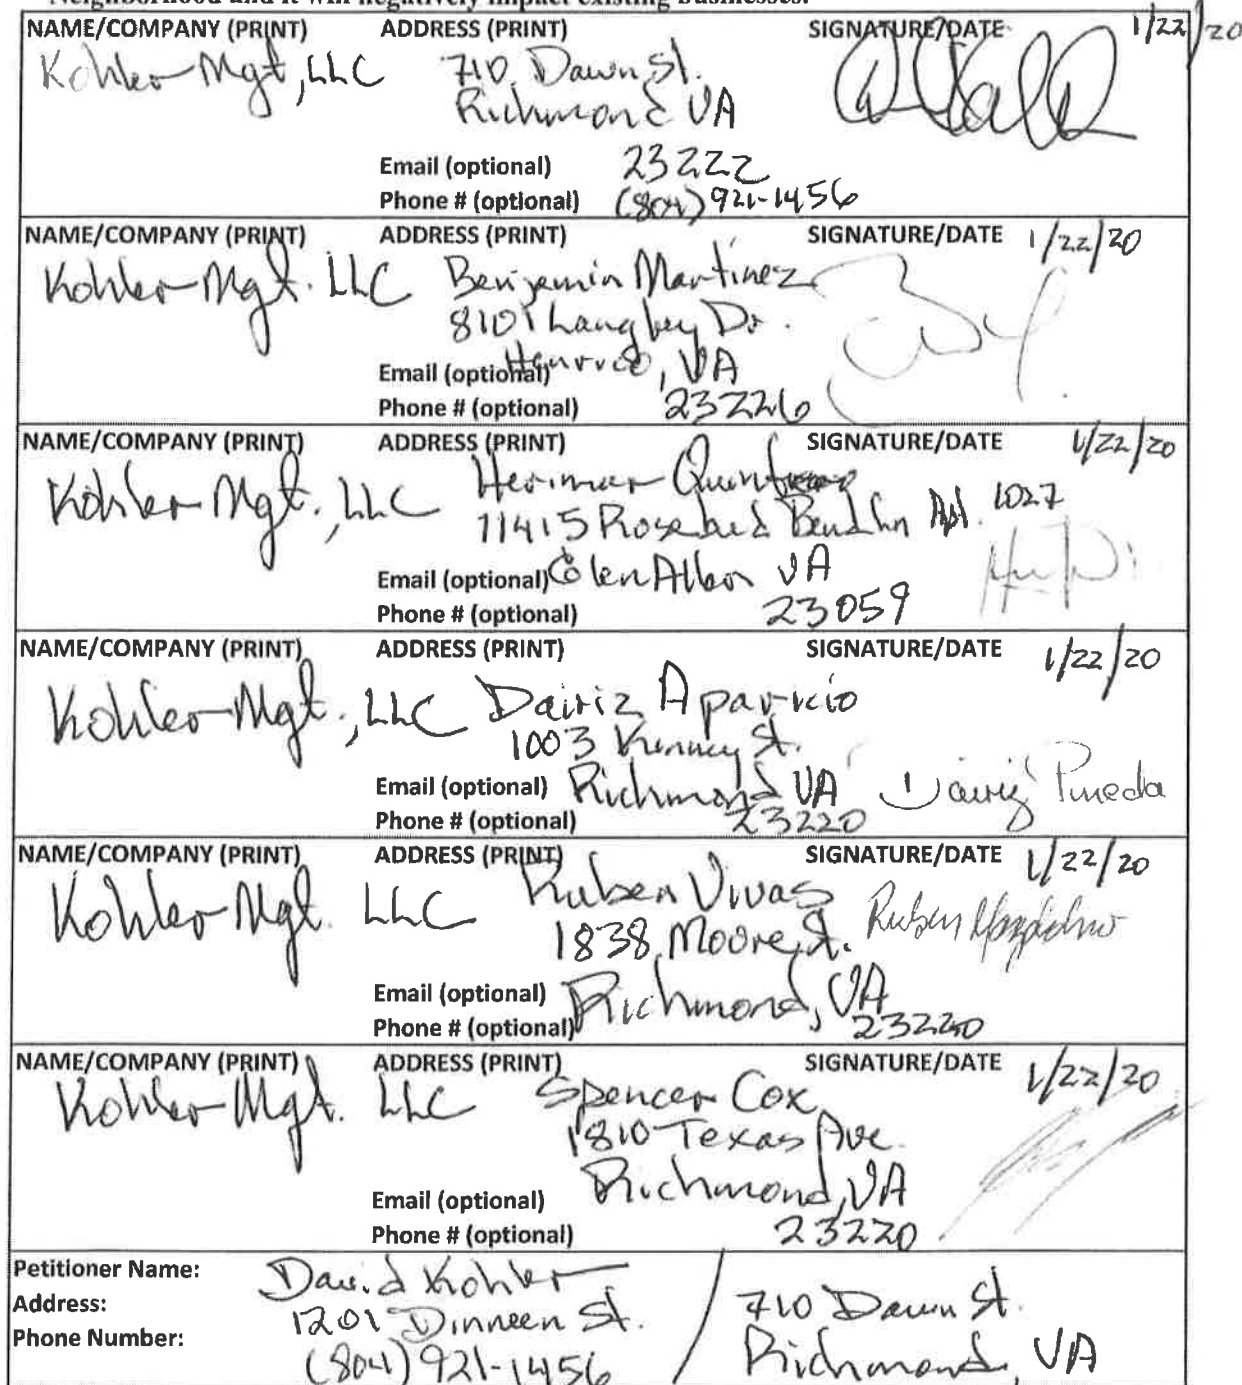 Neighborhood and it will negatively impact existing businesses.
NAME/COMPANY (PRINT) ADDRESS (PRINT) SIGNATURE/DATE 1/22/20
Kohler Mgt, LLC 710 Dawn St.
Richmond VA
Email (optional) 23222
Phone # (optional) (804) 921-1456
NAME/COMPANY (PRINT) ADDRESS (PRINT) SIGNATURE/DATE 1/22/20
Kohler Mgt. LLC Benjamin Martinez
8101 Langley Dr.
Email (optional) Henrico, VA
Phone # (optional) 23226
NAME/COMPANY (PRINT) ADDRESS (PRINT) SIGNATURE/DATE 1/22/20
Kohler Mgt., LLC
11415 Rosebud Bend Ln Apt. 1027
Email (optional) Glen Allen VA
Phone # (optional) 23059
NAME/COMPANY (PRINT) ADDRESS (PRINT) SIGNATURE/DATE 1/22/20
Kohler Mgt., LLC Dairiz Aparicio
1003 Kinney St.
Email (optional) Richmond VA Dairiz Pineda
Phone # (optional) 23220
NAME/COMPANY (PRINT) ADDRESS (PRINT) SIGNATURE/DATE 1/22/20
Kohler Mgt. LLC Ruben Vivas
1838 Moore St. Ruben
Email (optional) Richmond, VA
Phone # (optional) 23220
NAME/COMPANY (PRINT) ADDRESS (PRINT) SIGNATURE/DATE 1/22/20
Kohler Mgt. LLC Spencer Cox
1810 Texas Ave.
Richmond, VA
Email (optional)
Phone # (optional) 23220
Petitioner Name: David Kohler
Address: 1201 Dinneen St. / 710 Dawn St.
Phone Number: (804) 921-1456 Richmond, VA